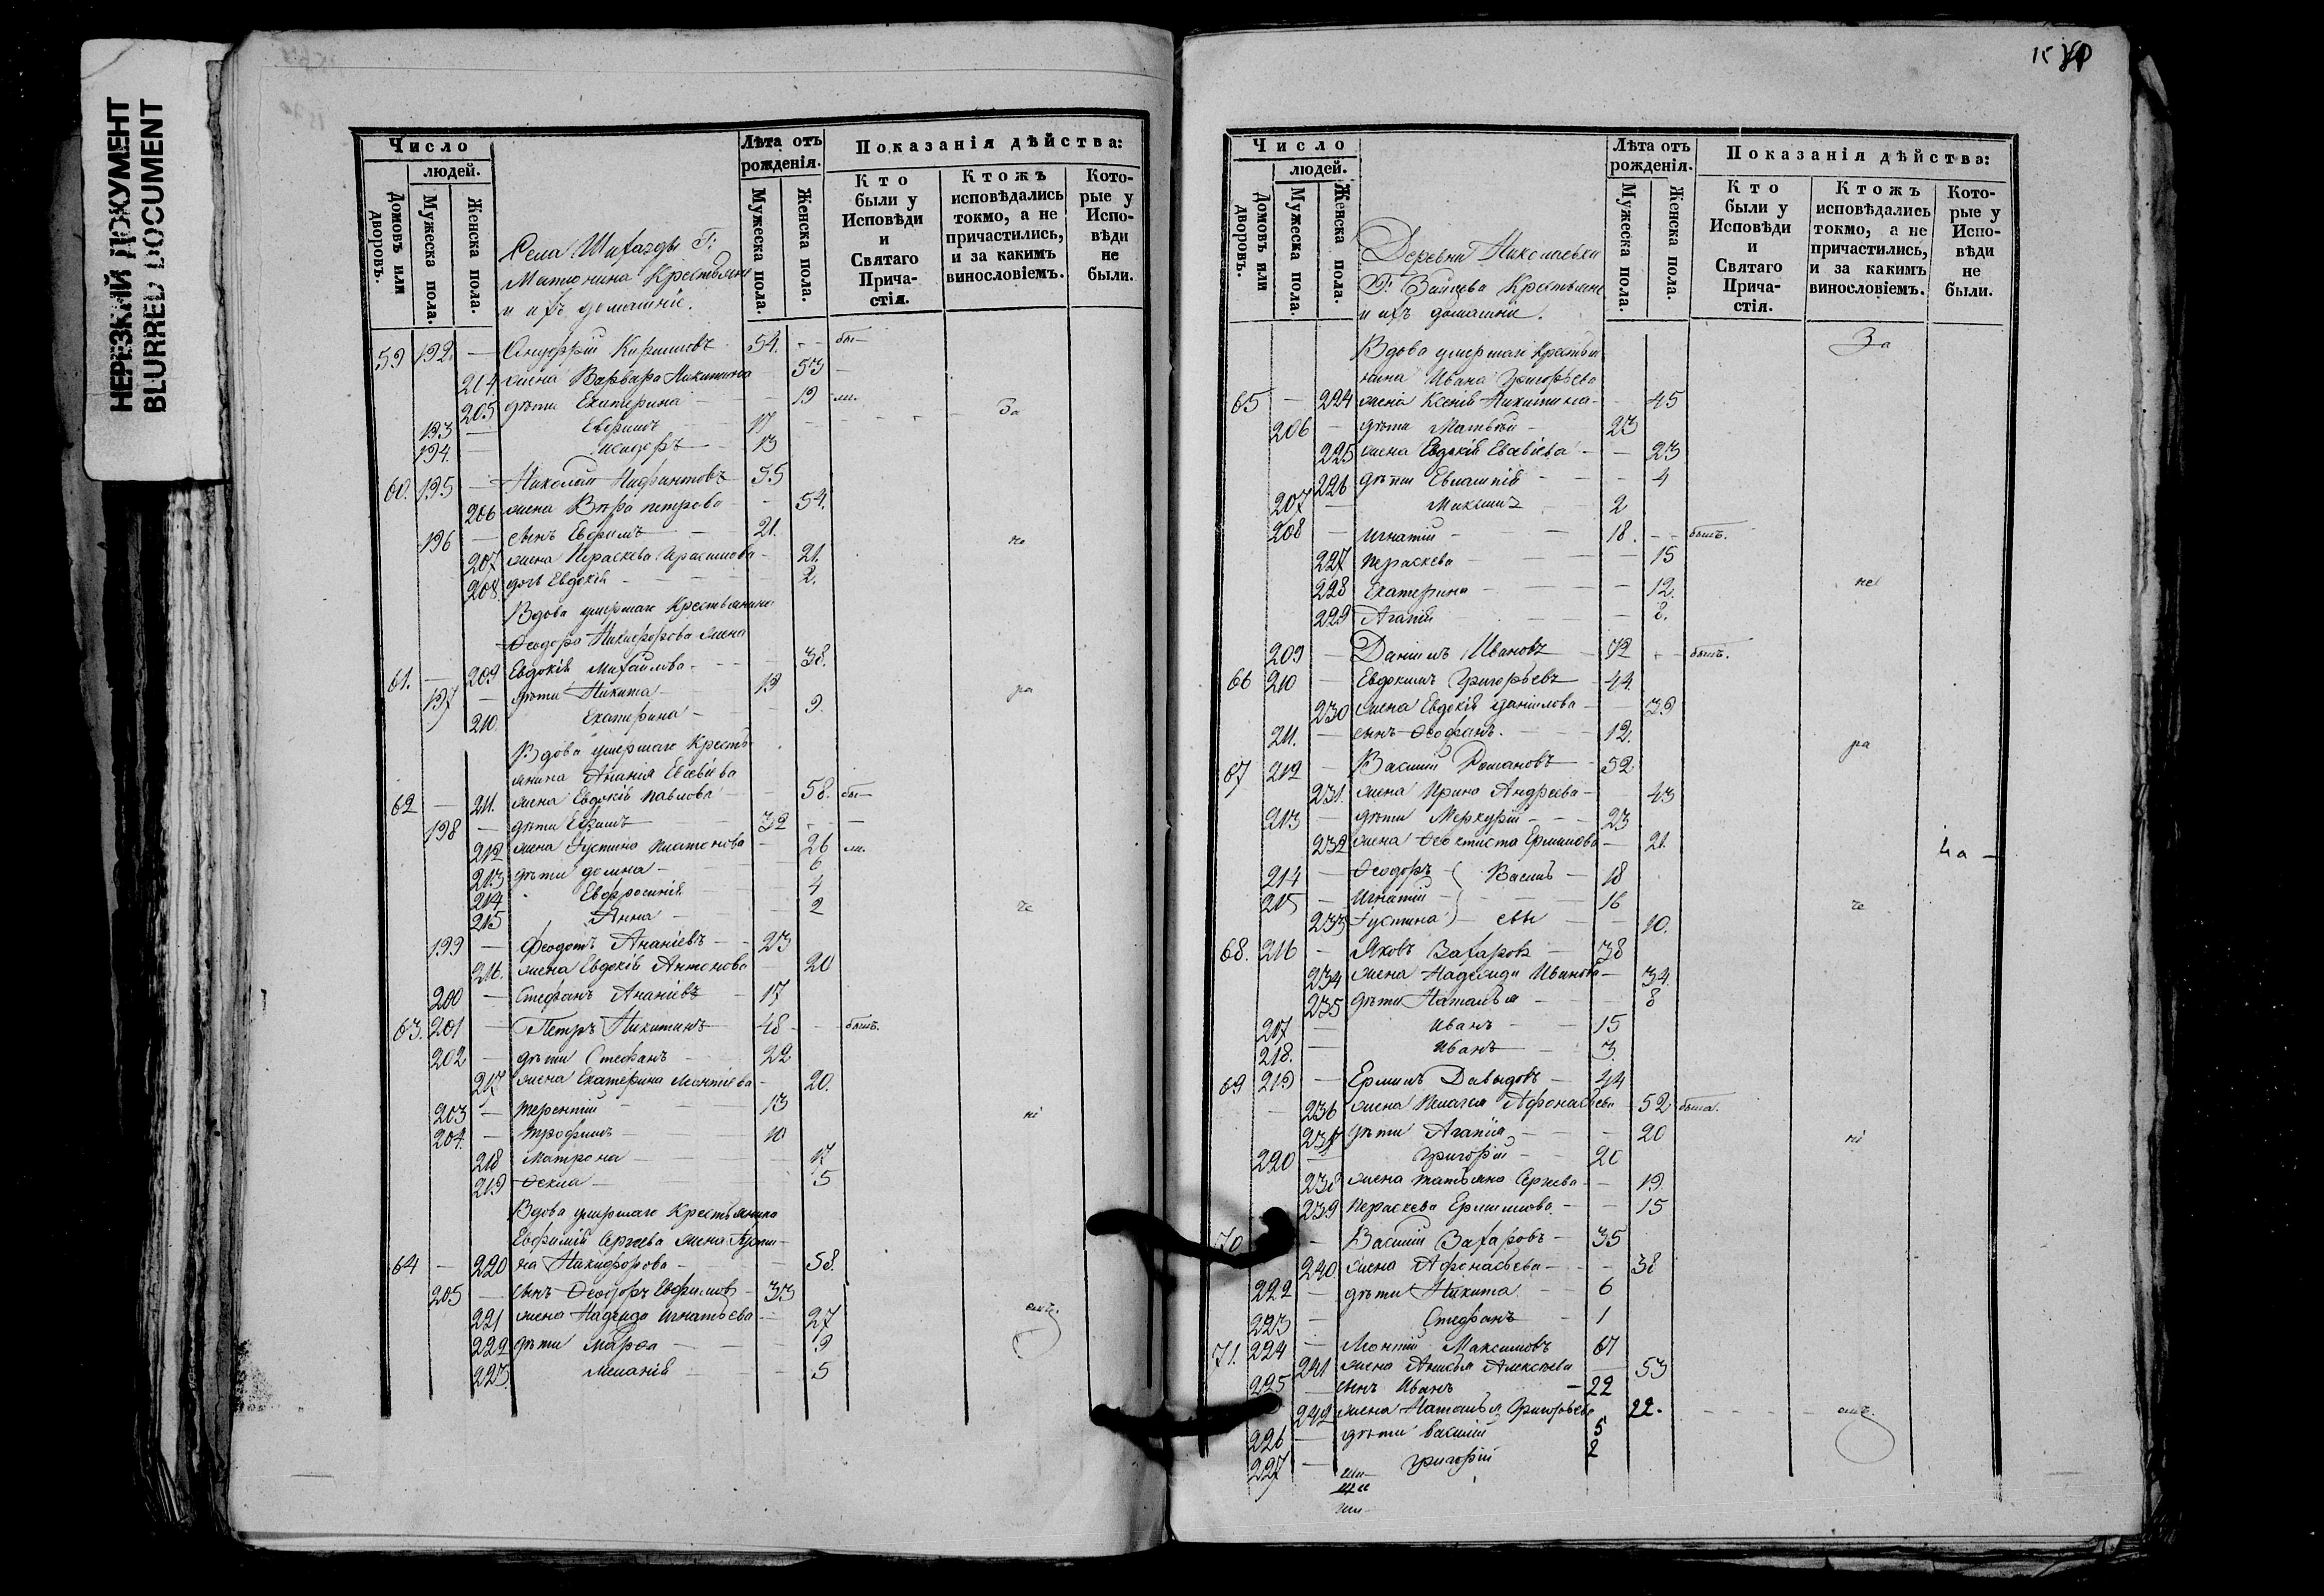 НЕРЕЗКИЙ ДОКУМЕНТ
BLURRED DOCUMENT
Число
людей.
Домовъ или дворовъ.
Мужеска пола.
Женска пола.
Лѣта отъ рожденія.
Мужеска пола.
Женска пола.
Показанія дѣйства:
Кто были у Исповѣди и Святаго Прича-стія.
Ктожъ исповѣдались токмо, а не причастились, и за какимъ винословіемъ.
Кото-рые у Испо-вѣди не были.
Села
Матюнина Крестьяне
и ихъ домашніе.
59 192 — 54. — бы—
204 жена Варвара Никитина 53 —
205 дѣти Екатерина — 19 ли.
193 — Евфимъ 17 За
194. — Исидоръ — 13
60. 195 — Николай 55
206 жена Вѣра петрова — 54.
196 — сынъ Евфимъ — 21.
207 жена Параскева Герасимова — 21.
208 дочь Евдокія — 2.
Вдова умершаго Крестьянина
Ѳеодора Никифорова жена
61. — 209 Евдокія Михайлова — 38.
197 — дѣти Никита — 19 ра
210. Екатерина — 9
Вдова умершаго Кресть-
янина Ананія Евсѣева
62 — 211. жена Евдокія павлова — 58. бы—
198 — дѣти Ефимъ 32 —
212 жена Іустина Платонова — 26 ли.
213 дѣти домна — 6
214 Евфросинія 4
215 Анна — 2 че
199 — Феодотъ Ананіевъ — 23
216. жена Евдокія Антонова — 20
200 — Стефанъ Ананіевъ — 17
63. 201 — Петръ Никитинъ 48 — — былъ.
202 — дѣти Стефанъ 22
217 жена Екатерина Леонтіева — 20.
203 — терентій — 13 ні
204. — трофимъ — 10
218 Матрона — 17
219 Ѳекла — 5
Вдова умершаго Крестьянина
Евфимія Сергѣева жена
64 — 220 на Никифорова — 58.
205 — сынъ Ѳеодоръ Евфимовъ — 33
221 жена Надежда Игнатьева — 27 емъ.
222 дѣти Марѳа — 9
223. Меланія — 5
Число
людей.
Домовъ или дворовъ.
Мужеска пола.
Женска пола.
Лѣта отъ рожденія.
Мужеска пола.
Женска пола.
Показанія дѣйства:
Кто были у Исповѣди и Святаго Прича-стія.
Ктожъ исповѣдались токмо, а не причастились, и за какимъ винословіемъ.
Кото-рые у Испо-вѣди не были.
Деревни Николаевки
Г: Зайцева Крестьяне
и ихъ домашніе.
Вдова умершаго Крестья За
нина Ивана Григорьева
65 — 224 жена Ксенія Никитина — 45
206 — дѣти Матвѣй — 23
225 жена Евдокія Евсѣвіева — — 23
226 дѣти Евлампія — — 4
207 — Максимъ 2
208 — Игнатій — 18. — — былъ.
227 параскева — 15
228 Екатерина — 12. не
229 Агапія — 8.
209 — Даніилъ Ивановъ — 72 — былъ.
66 210 — Евдокимъ Григорьевъ — 44.
230 жена Евдокія данилова — — 39
211. — сынъ Ѳеофанъ. — 12. ра
67 212 — Василій Романовъ — 52
231. жена Ирина Андреева — 43
213 — дѣти Меркурій — 23
232 жена Ѳеоктиста Ермилова — 21.
214 — Ѳеодоръ — Василь — 18
215 — Игнатій — 16 че
233 Іустина — евы — 10.
68. 216 — Яковъ Захаровъ — 38
234 жена Надежда Иванова — 34.
235 дѣти Наталья — 8
217 — Иванъ — 15
218. — Иванъ — 3.
69 219 — Ермилъ Давыдовъ — 44
— 236 жена Пелагея Афонасьева 52 была.
237 дѣти Агапія — 20 ні
220 — Григорій — 20
238 жена татьяна Сергѣева — — 19.
239 параскева Ермилова — — 15
70 — Василій Захаровъ — 35
240. жена Афонасьева — — 38
222 — дѣти Никита — 6
223 — Стефанъ — 1
71. 224 — Леонтій Максимовъ 67
241 жена Анисья Алексѣева — 53
225 — сынъ Иванъ — 22
242 жена Наталья Григорьева 22. — емъ.
226 — дѣти Василій 5
227 — Григорій 2